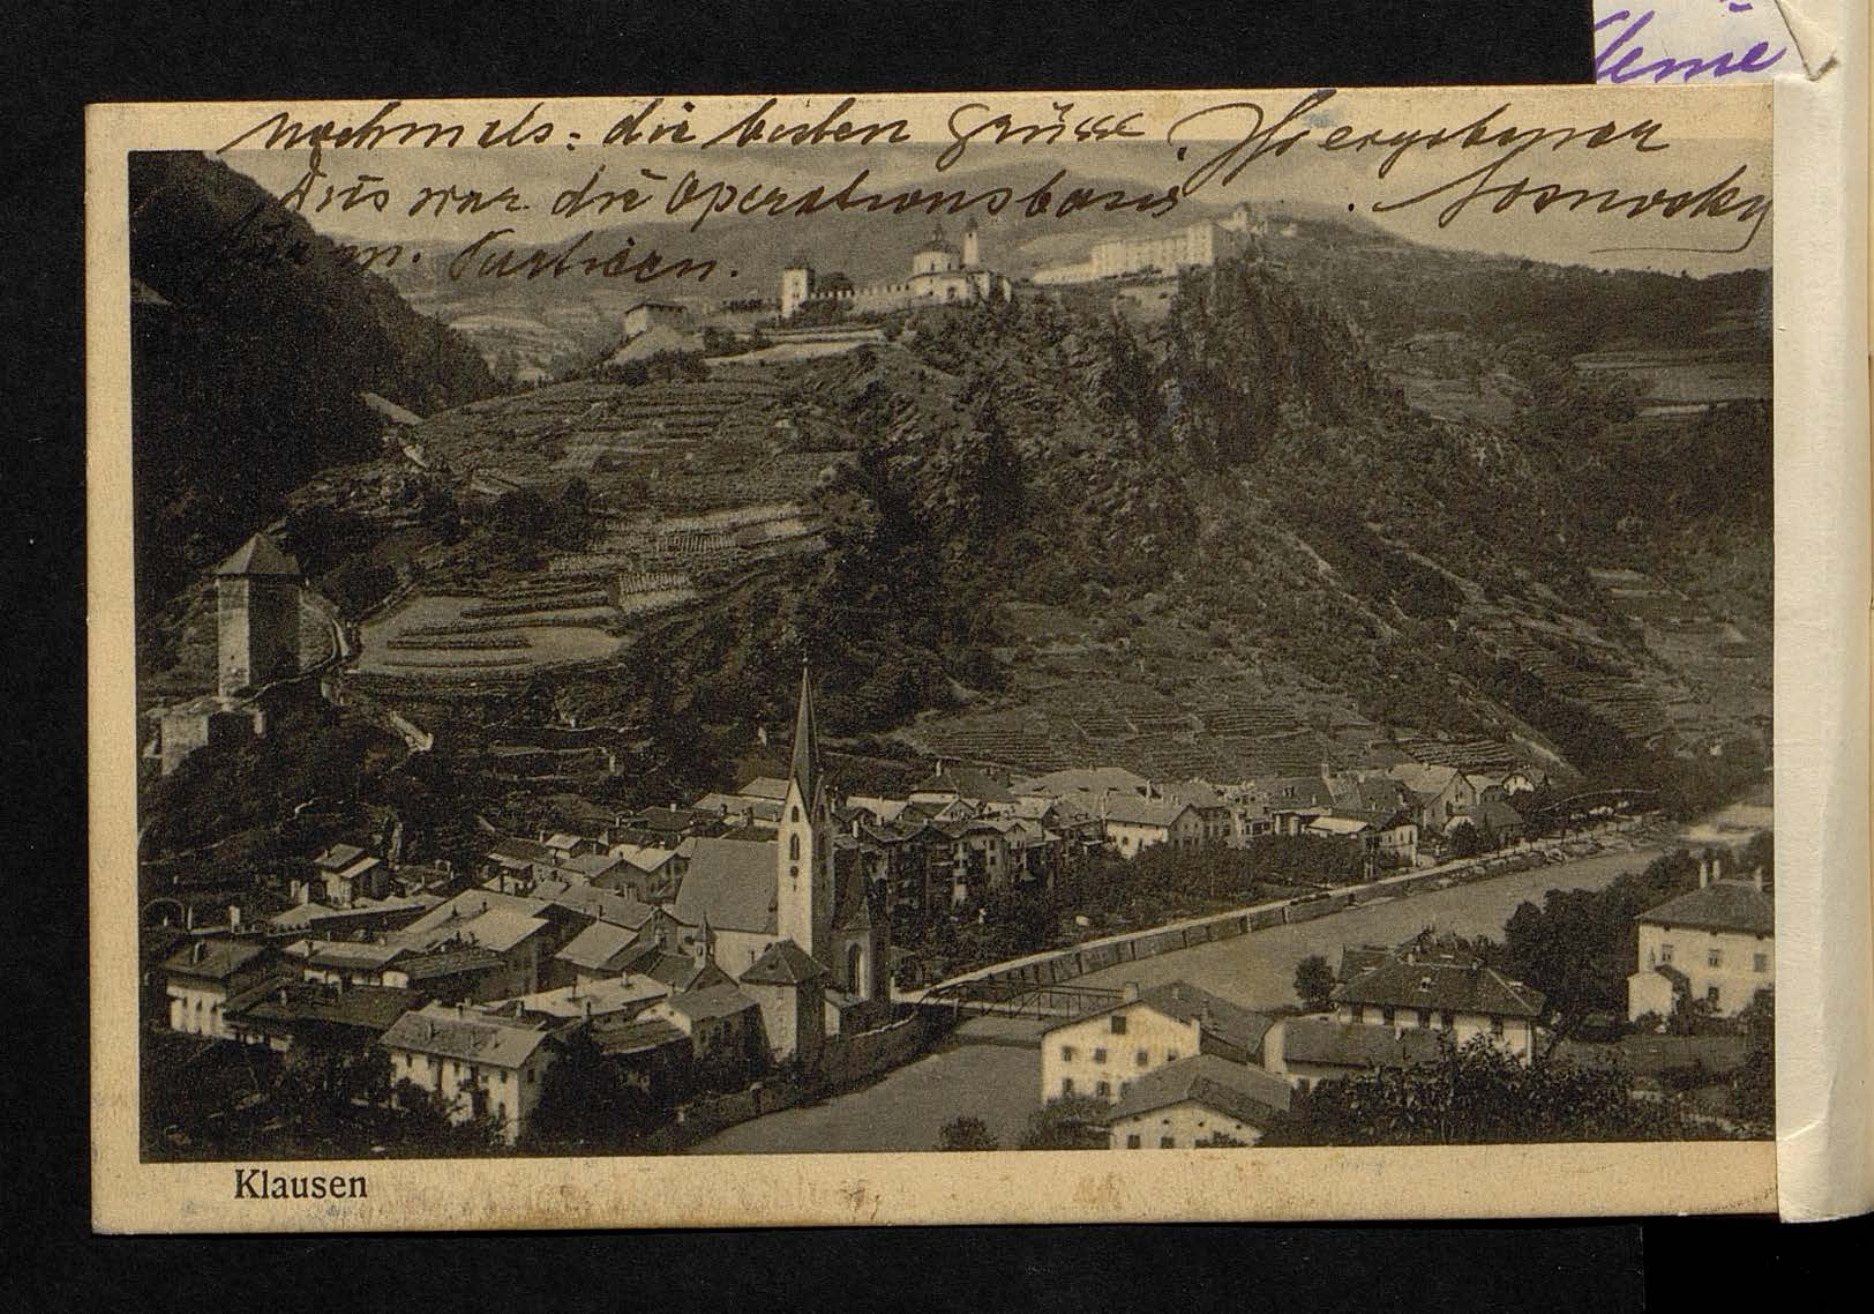 nochmals: die besten Grüsse. Ihr ergebener
Dies war die Operationsbasis. Sosnosky
für m. Partieen.
Klausen